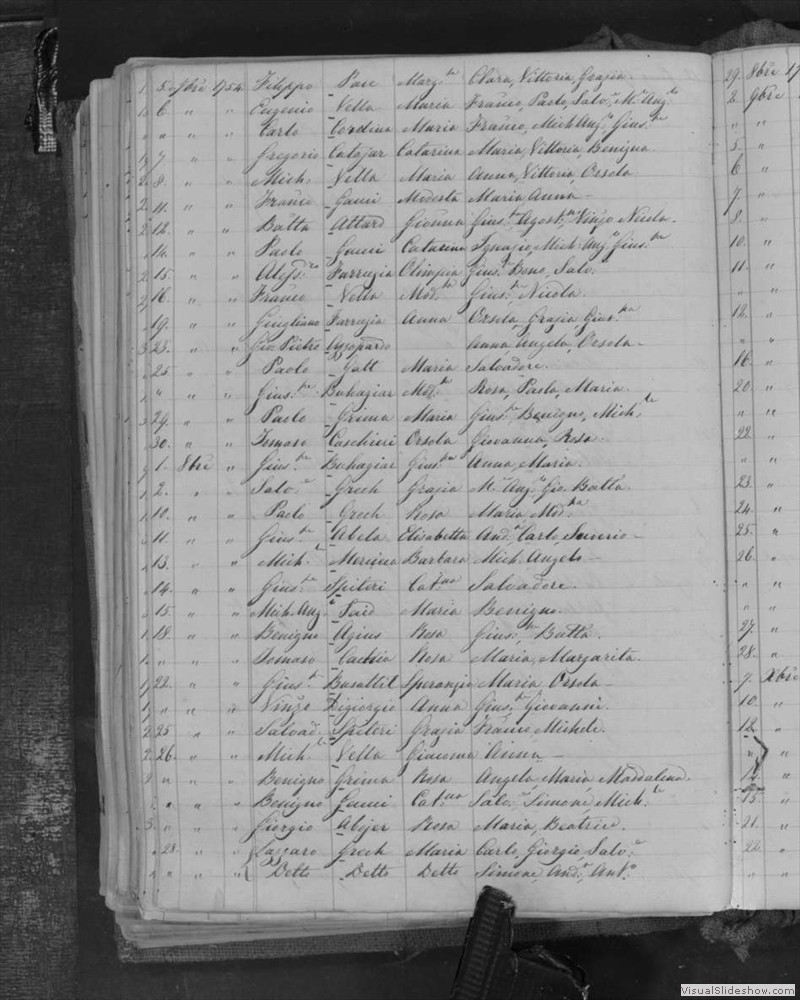 5. 7bre 1754 Filippo Pace Marg.ta Clara, Vittoria, Grazia.
6. " " Eugenio Vella Maria Franco, Paolo, Salv.e M.l Ang.lo
" " " Carlo Cordina Maria Franco, Mich Ang.o Gius.pe
7. " " Gregorio Catajar Catarina Maria, Vittoria, Benigna
8. " " Mich. Vella Maria Anna, Vittoria, Orsola
11. " " Franco Gauci Modesta Maria, Anna -
12. " " Batta Attard Gionna Gius.e, Agost.no Vinzo Nicola.
14. " " Paolo Gauci Catarina Ignazio, Mich. Ang.o Gius.pe
15. " " Farrugia Olimpia Gius.e Beno, Salv.
16. " " Franco Vella Mod.ta Gius.pe, Nicola.
19. " " Giugliano Farrugia Anna Orsola, Grazia, Gius.ppa
23. " " Gio Pietro Azzopardo Anna Angela, Orsola.
25. " " Paolo Galt Maria Salvadore.
" " " Gius.pe Buhagiar Mod.ta Rosa, Paola, Maria.
29. " " Paolo Grima Maria Gius.pe Benigno, Mich.le
30. " " Tomaso Caschieri Orsola Giovanna, Rosa.
1. 8bre " Gius.pe Buhagiar Gius.pa Anna, Maria.
2. " " Salv.e Grech Grazia M.l Ang.o Gio. Batta.
10. " " Paolo Grech Rosa Maria, Mod.ta
11. " " Gius.pe Abela Elisabetta And.a Carlo, Saverio -
13. " " Mich.l Merciea Barbara Mich. Angelo -
14. " " Gius.pe Spiteri Cat.na Salvadore.
15. " " Mich. Ang.o Said Maria Benigno.
18. " " Benigno Agius Rosa Gius.pe, Batta.
" " " Tomaso Cachia Rosa Maria, Margarita.
22. " " Gius.e Busuttil Speranza Maria Orsola -
" " " Vinzo Digiorgio Anna Gius.e, Giovanni.
25. " " Salvad. Spiteri Grazia Franco Michele.
26. " " Mich.l Vella Giacoma Anna -
" " " Benigno Grima Rosa Angela, Maria, Maddalena.
" " " Benigno Gauci Cat.na Salv.e Simone, Mich.le
" " " Giorgio Abejer Rosa Maria, Beatrice.
28. " " Grech Maria Carlo, Giorgio, Salv.e
" " " Detto Detto Detto Simone, And.a, Ant.o
29. 8bre 17
2. 9bre
" "
5. "
6. "
7. "
8. "
10. "
11. "
" "
12. "
" "
16. "
20. "
" "
22. "
" "
23. "
24. "
25. "
26. "
" "
" "
27. "
28. "
7. Xbre
10. "
12. "
" "
" "
15. "
21. "
22. "
" "
VisualSlideshow.com